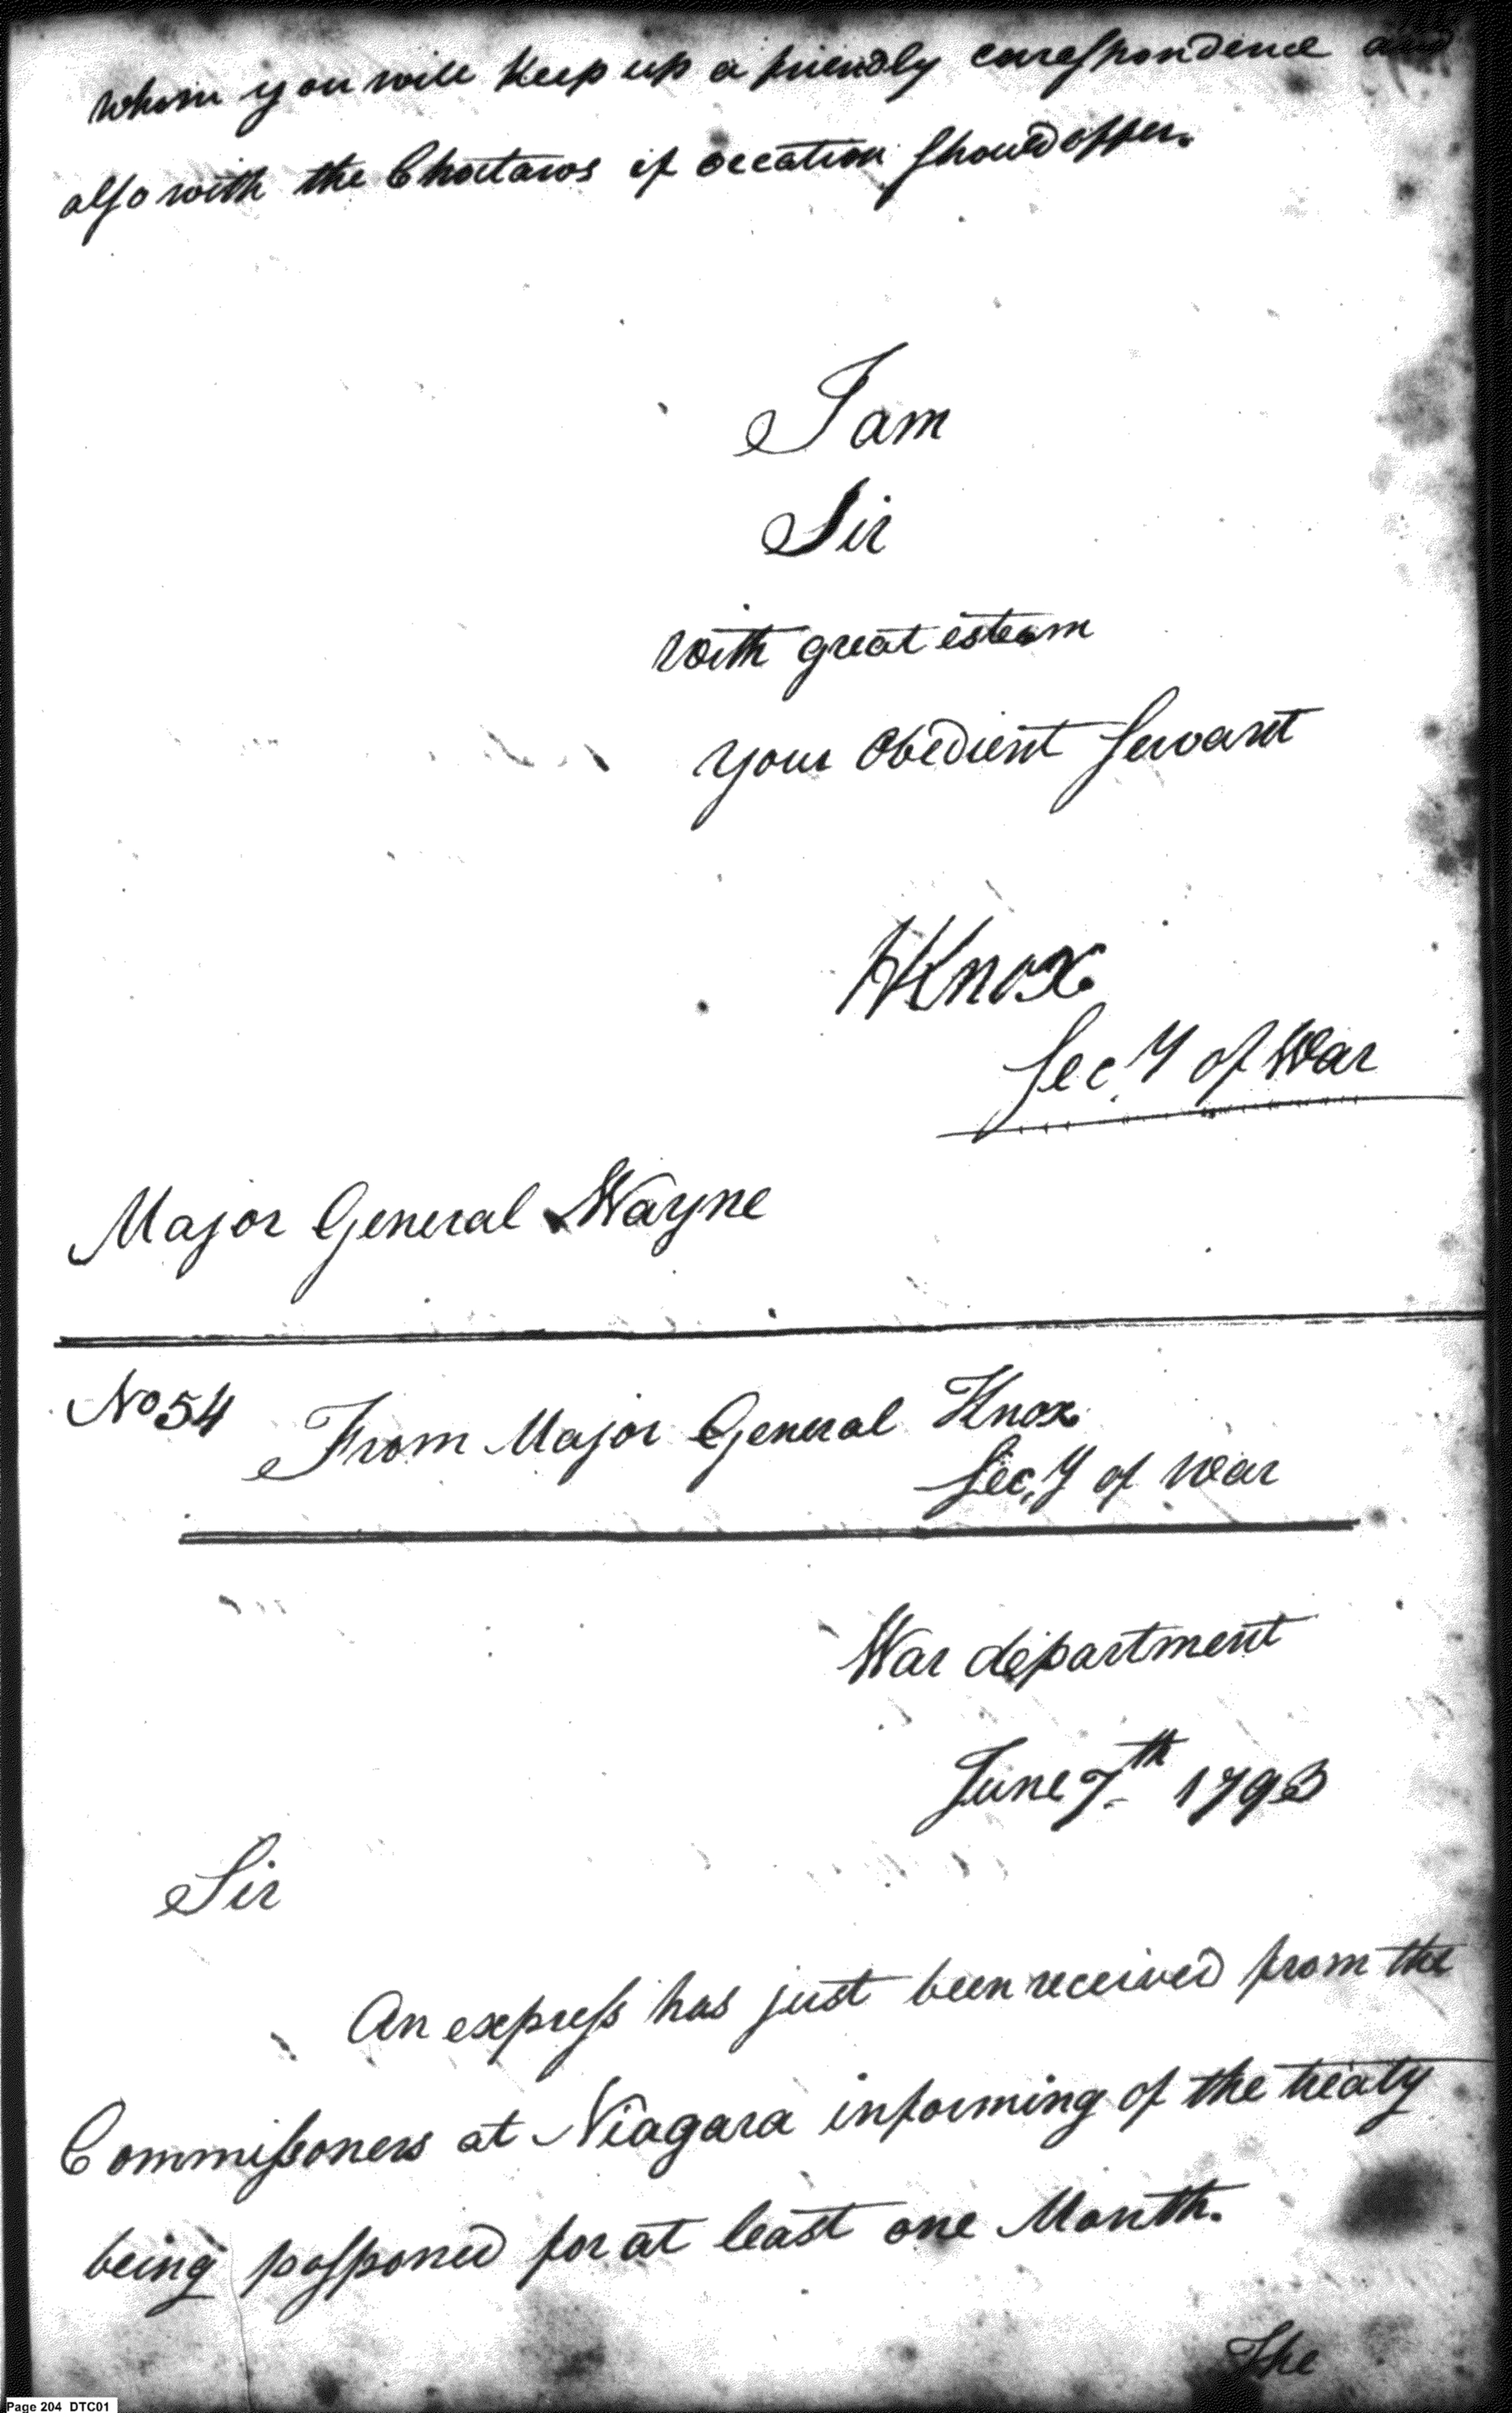 whom you will keep up a friendly carespondence and
also with the Choctaws if occation should offer.
I am
Sir
with great esteem
your Obedient Servant
HKnox
Sec.y of War
Major General Wayne
No 54 From Major General Knox
Sec.y of War
War department
June 7th 1793
Sir
An express has just been received from the
Commissoners at Niagara informing of the treaty
being posponed for at least one Month.
The
Page 204 DTC01